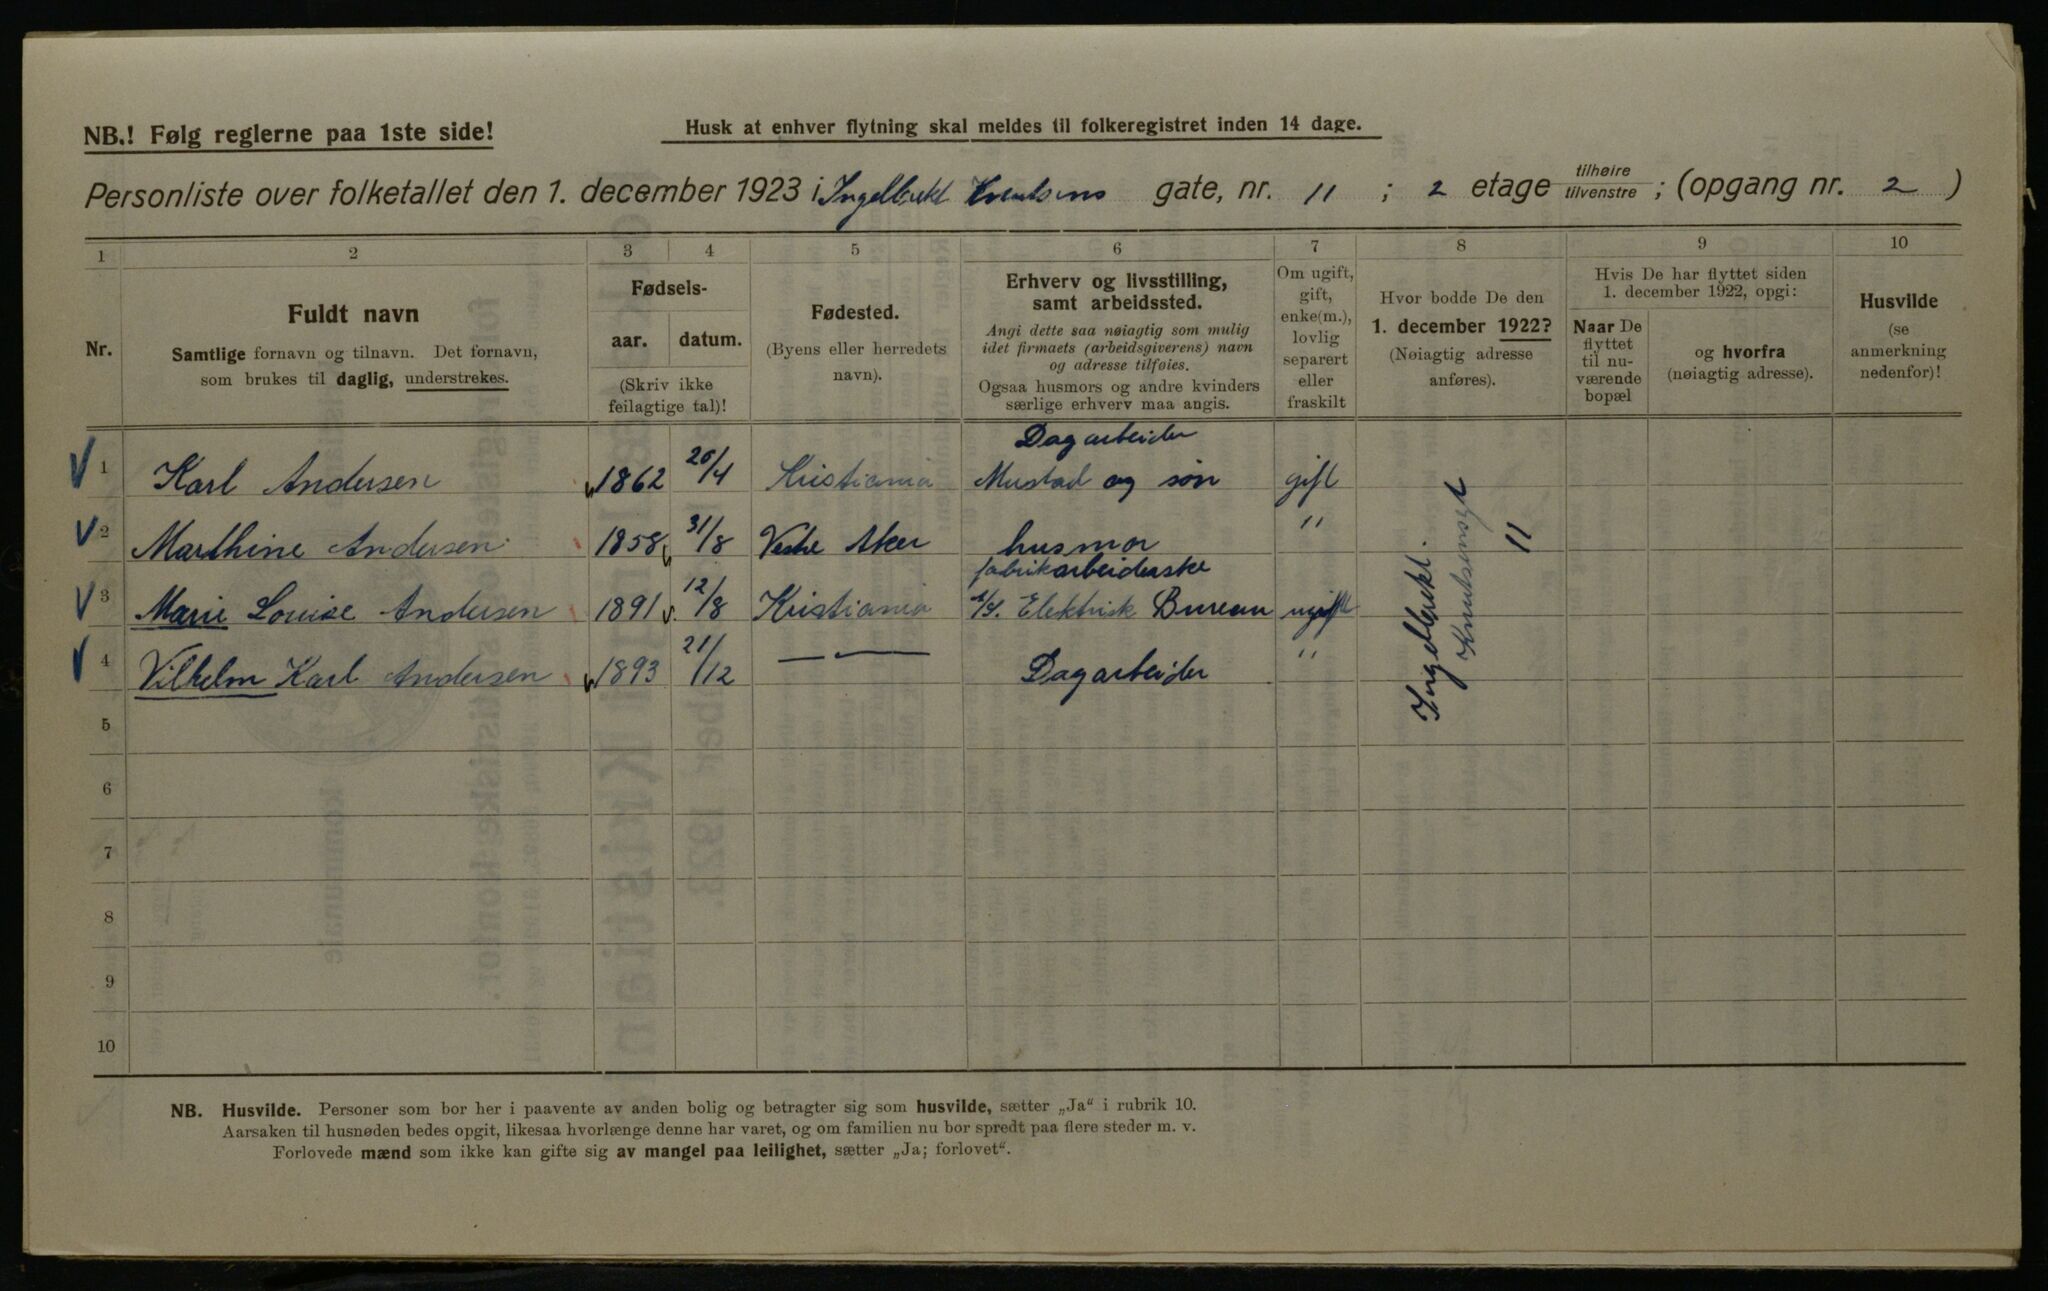 NB.! Følg reglerne paa 1ste side!
Husk at enhver flytning skal meldes til folkeregistret inden 14 dage.
Personliste over folketallet den 1. december 1923 i Ingelbrekt Knutsens gate, nr. 11 ; 2 etage tilhøire/tilvenstre ; (opgang nr. 2 )
1 2 3 4 5 6 7 8 9 10
Nr.
Fuldt navn
Samtlige fornavn og tilnavn. Det fornavn,
som brukes til daglig, understrekes.
Fødsels-
aar. datum.
(Skriv ikke
feilagtige tal)!
Fødested.
(Byens eller herredets
navn).
Erhverv og livsstilling,
samt arbeidssted.
Angi dette saa nøiagtig som mulig
idet firmaets (arbeidsgiverens) navn
og adresse tilføies.
Ogsaa husmors og andre kvinders
særlige erhverv maa angis.
Om ugift,
gift,
enke(m.),
lovlig
separert
eller
fraskilt
Hvor bodde De den
1. december 1922?
(Nøiagtig adresse
anføres).
Hvis De har flyttet siden
1. december 1922, opgi:
Naar De
flyttet
til nu-
værende
bopæl
og hvorfra
(nøiagtig adresse).
Husvilde
(se
anmerkning
nedenfor)!
Dagarbeider
1 Karl Andersen 1862 20/4 Kristiania Mustad og søn gift
2 Marthine Andersen 1858 31/8 Vestre Aker husmor "
fabrikarbeiderske
3 Marie Louise Andersen 1891 12/8 Kristiania Elektrisk Bureau ugift
4 Vilhelm Karl Andersen 1893 21/12 — — Dagarbeider "
Ingelbrekt
Knutsensgt
11
5
6
7
8
9
10
NB. Husvilde. Personer som bor her i paavente av anden bolig og betragter sig som husvilde, sætter „Ja“ i rubrik 10.
Aarsaken til husnøden bedes opgit, likesaa hvorlænge denne har varet, og om familien nu bor spredt paa flere steder m. v.
Forlovede mænd som ikke kan gifte sig av mangel paa leilighet, sætter „Ja; forlovet“.